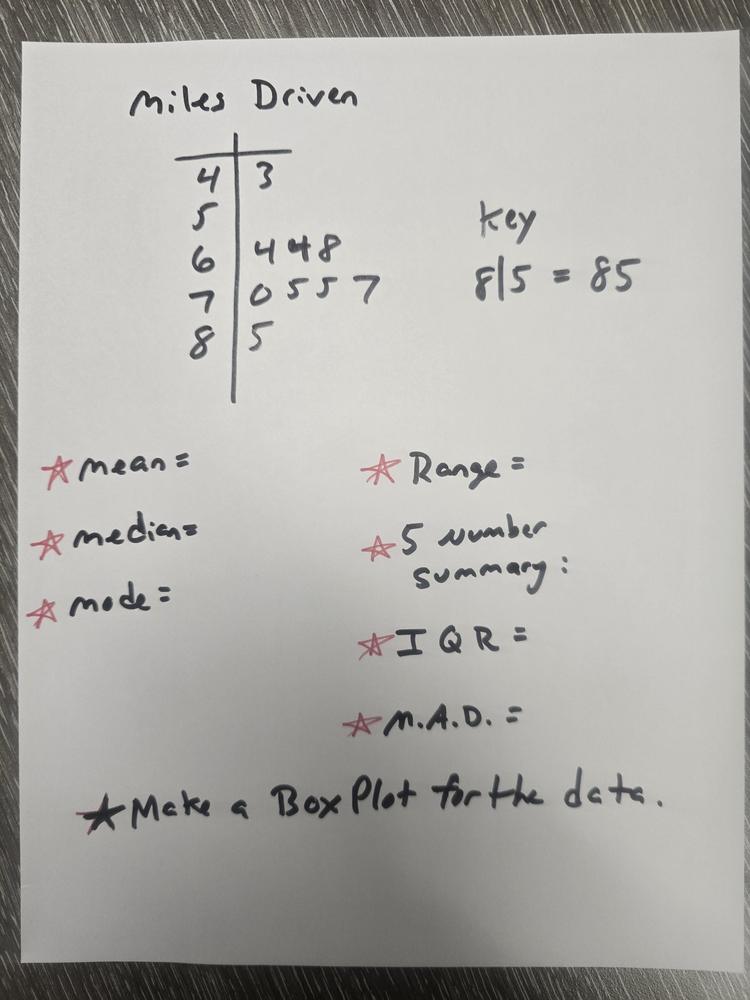 Miles Driven
4 | 3
5 |
6 | 4 4 8
7 | 0 5 5 7
8 | 5
Key
8|5 = 85
☆ mean =
☆ median=
☆ mode =
☆ Range =
☆ 5 Number
summary:
☆ IQR =
☆ M.A.D. =
☆ Make a Box Plot for the data.